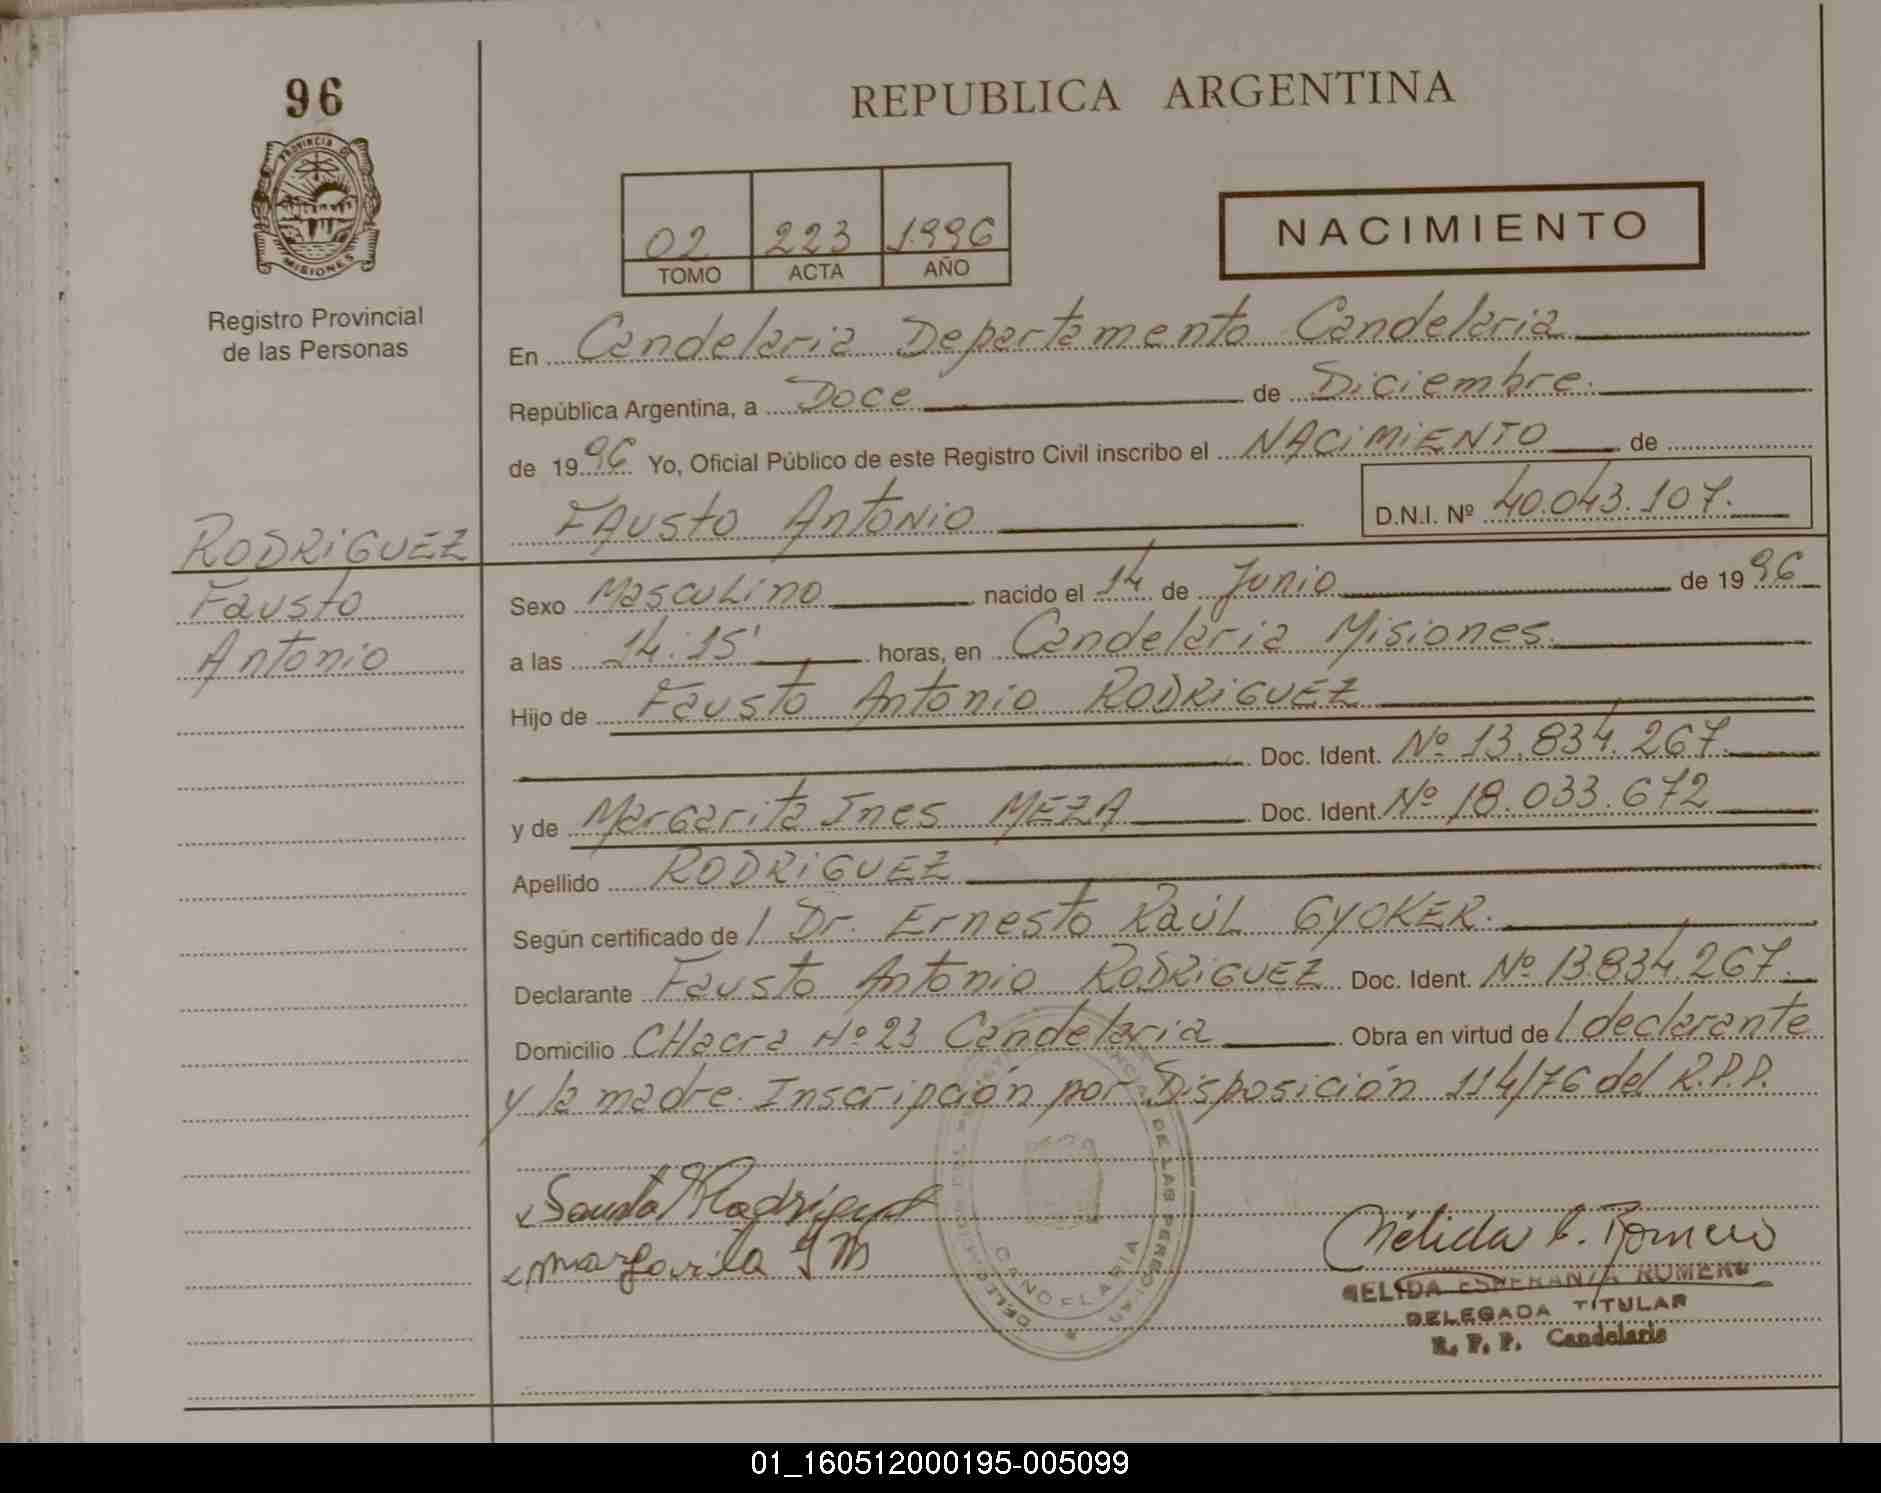 96
PROVINCIA DE
MISIONES
Registro Provincial
de las Personas
RODRIGUEZ
Fausto
Antonio
REPUBLICA ARGENTINA
02 223 1.996
TOMO ACTA AÑO
NACIMIENTO
En Candelaria Departamento Candelaria
República Argentina, a Doce de Diciembre.
de 1996 Yo, Oficial Público de este Registro Civil inscribo el NACIMIENTO de
FAusto AntoNio D.N.I. Nº 40.043.107.
Sexo Masculino nacido el 14 de Junio de 1996
a las 14:15' horas, en Candelaria Misiones.
Hijo de Fausto Antonio RODRIGUEZ
Doc. Ident. Nº 13.834.267.
y de Margarita Ines MEZA Doc. Ident. Nº 18.033.672
Apellido RODRIGUEZ
Según certificado de l Dr. Ernesto Raúl GYOKER.
Declarante Fausto Antonio RODRIGUEZ Doc. Ident. Nº 13.834.267.
Domicilio CHacra Nº 23 Candelaria Obra en virtud de l declarante
y la madre. Inscripción por Disposición 114/76 del R.P.P.
Fausto Rodriguez
margarita I M
DE LAS PERSO
Nélida E. Romero
NELIDA ESPERANZA ROMERO
DELEGADA TITULAR
R. P. P. Candelaria
01_160512000195-005099